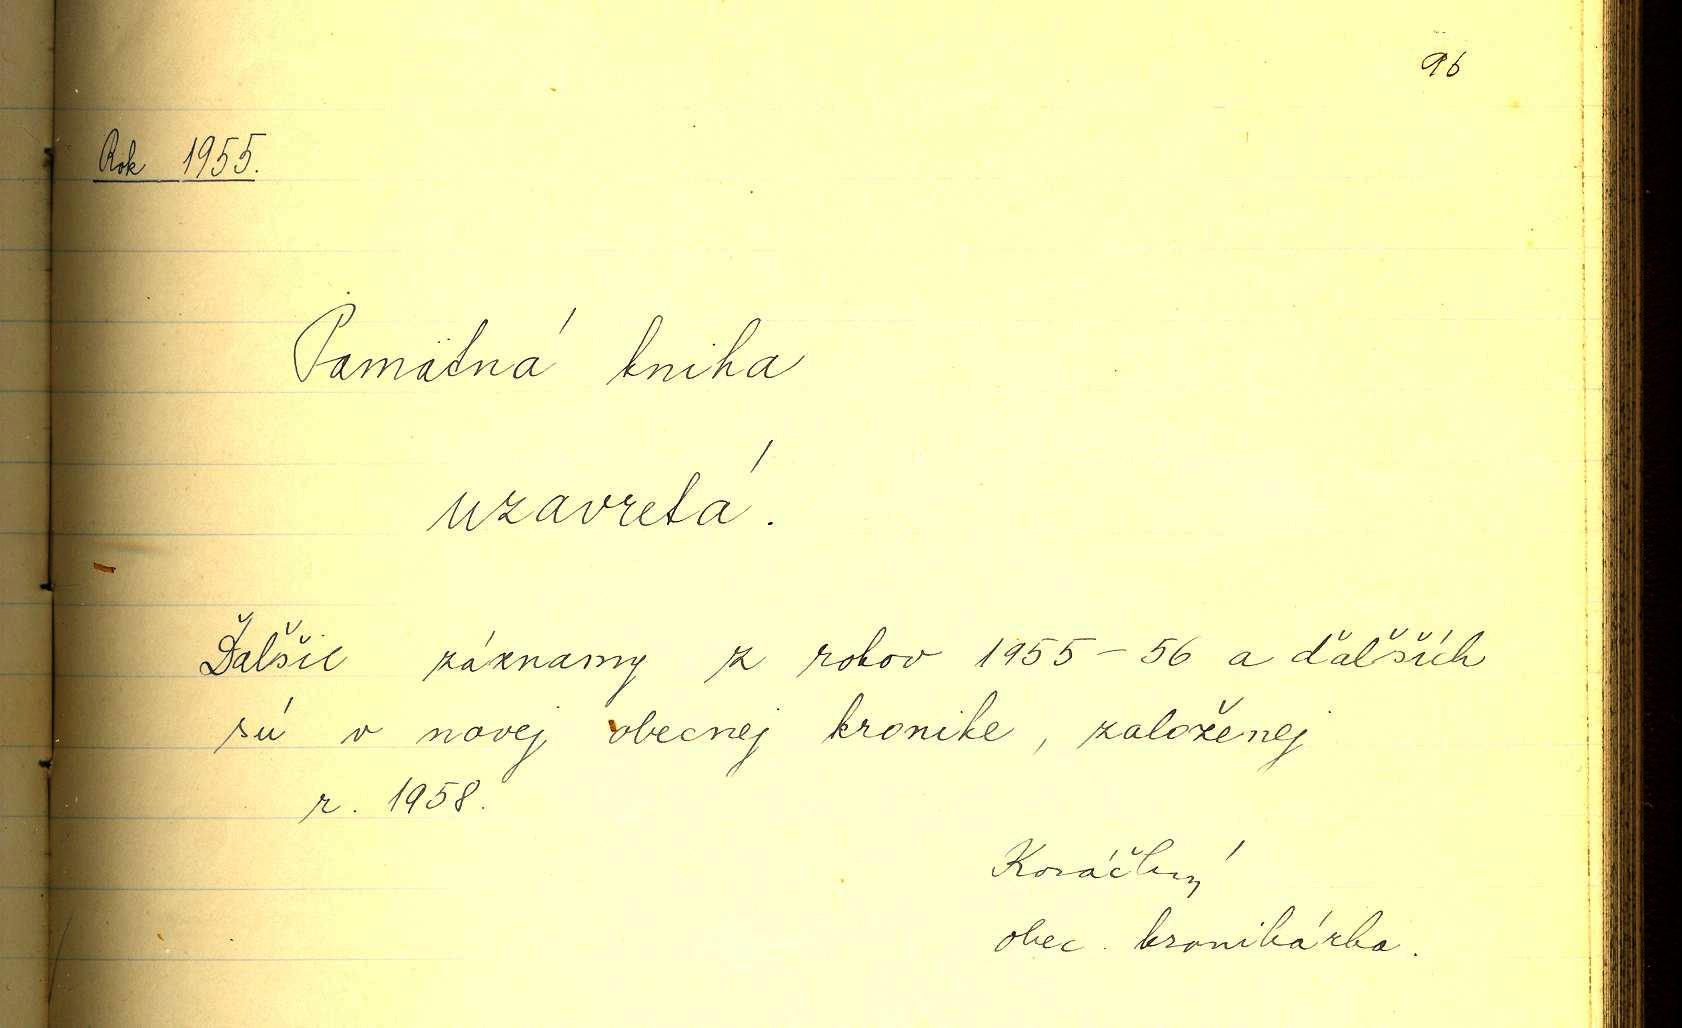 96
Rok 1955.
Pamätná kniha
uzavretá.
Ďalšie záznamy z rokov 1955-56 a ďalších
sú v novej obecnej kronike, založenej
r. 1958.
obec. kronikárka.